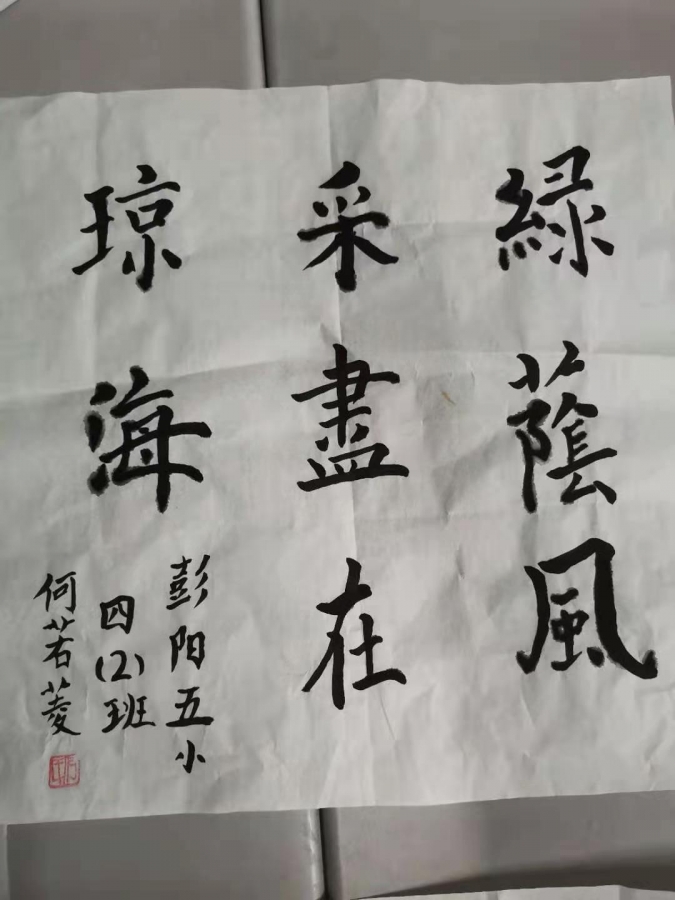 綠蔭風
采盡在
琼海
彭阳五小
四(2)班
何若菱